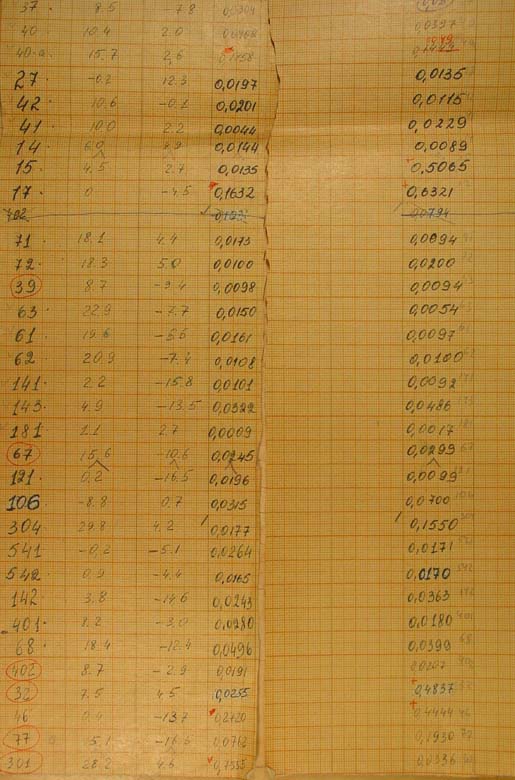 37. 8.5 -7.8
40 10.4 2.0 0,0397
40-a. 15.7 2,6
27. -0.2 12.3 0,0197 0,0135
42. 10.6 -0.1 0,0201 0,0115
41. 10.0 2.2 0,0044 0,0229
14. 0,0144 0,0089
15. 4.5 2.7 0,0135 0,5065
17. 0 -4.5 0,1632 0,6321
71. 18.1 4.4 0,0173 0,0094
72. 18.3 5.0 0,0100 0,0200
39 8.7 -3.4 0,0098 0,0094
63. 22.9 -7.7 0,0150 0,0054
61. 19.6 -5.6 0,0161 0,0097
62. 20.9 -7.4 0,0108 0,0100
141. 2.2 -15.8 0,0101 0,0092
143. 4.9 -13.5 0,0322 0,0486
181. 1.1 2.7 0,0009 0,0017
67 15.6 -10.6 0,0245 0,0299
121. 0.2 -16.5 0,0196 0,0099
106 -8.8 0.7 0,0315 0,0700
304 29.8 4.2 0,0177 0,1550
541 -0.2 -5.1 0,0264 0,0171
542. 0.9 -4.4 0,0165 0,0170
142. 3.8 -14.6 0,0243 0,0363
401. 8.2 -3.0 0,0280 0,0180
68. 18.4 -12.4 0,0496 0,0399
402 8.7 -2.9 0,0191 0,0207
32 7.5 4.5 0,0255 0,4837
46 -13.7 0,2720 0,4444
77 -16.5 0,0712 0,1930
301 28.2 4.6 0,0336